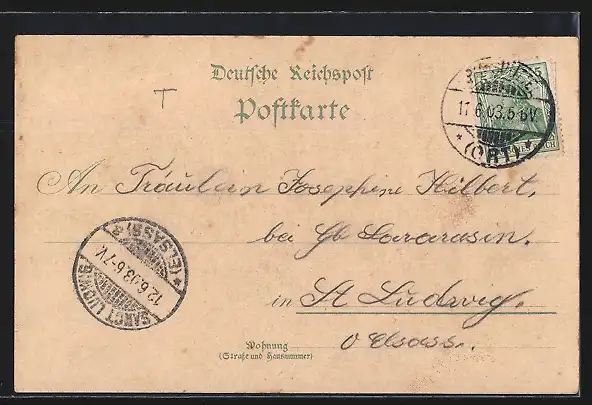 Deutsche Reichspost
Postkarte
T
5
11.6.03.5-6V
* (ORT) *
An Fräulein Josephine Hilbert,
bei Gb Sararasin.
in St Ludwig.
o Elsass.
SANCT LUDWIG
12.6.03.6-7V.
* (ELSASS) a
Wohnung
(Straße und Hausnummer)